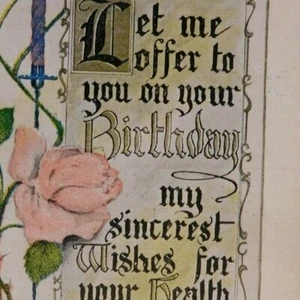 Let me
offer to
you on your
Birthday
my
sincerest
Wishes for
your Health